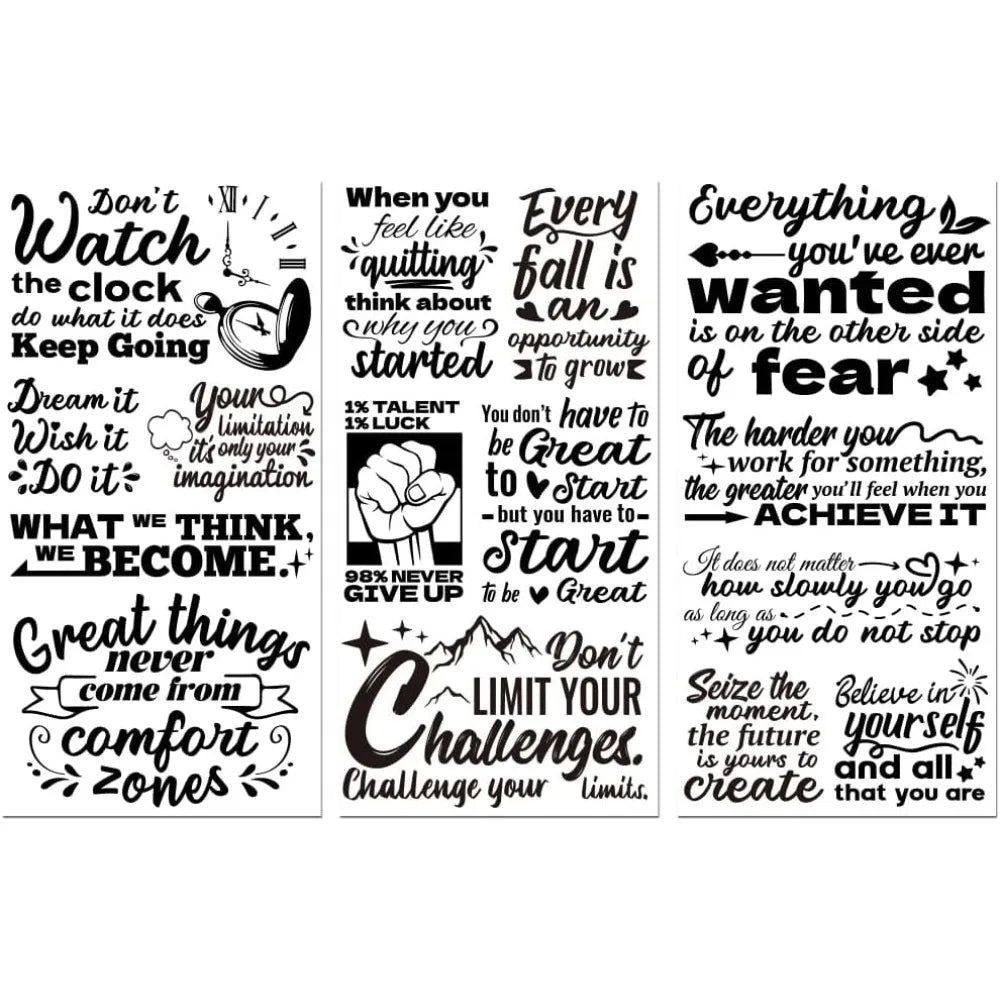 Don't
Watch
the clock
do what it does
Keep Going
XII
I
II
III
Dream it
Wish it
DO it
Your
limitation
it's only your
imagination
WHAT WE THINK,
WE BECOME.
Great things
never
come from
comfort
zones
When you
feel like
quitting
think about
why you
started
Every
fall is
an
opportunity
to grow
1% TALENT
1% LUCK
98% NEVER
GIVE UP
You don't have to
be Great
to Start
but you have to
Start
to be Great
Don't
LIMIT YOUR
Challenges.
Challenge your limits.
Everything
you've ever
wanted
is on the other side
of fear
The harder you
work for something,
the greater you'll feel when you
ACHIEVE IT
It does not matter
how slowly you go
as long as
you do not stop
Seize the
moment,
the future
is yours to
create
Believe in
yourself
and all
that you are